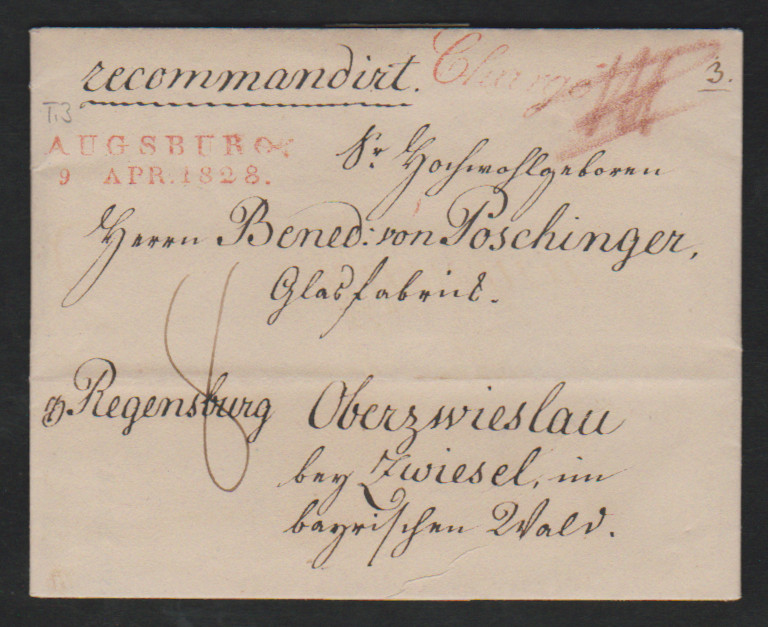 recommandirt. Chargé
3.
T.3
AUGSBURG
9 APR. 1828.
Sr Hochwohlgeboren
Herrn Bened: von Poschinger,
Glasfabrick.
Regensburg Oberzwieslau
bey Zwiesel, im
bayrischen Wald.